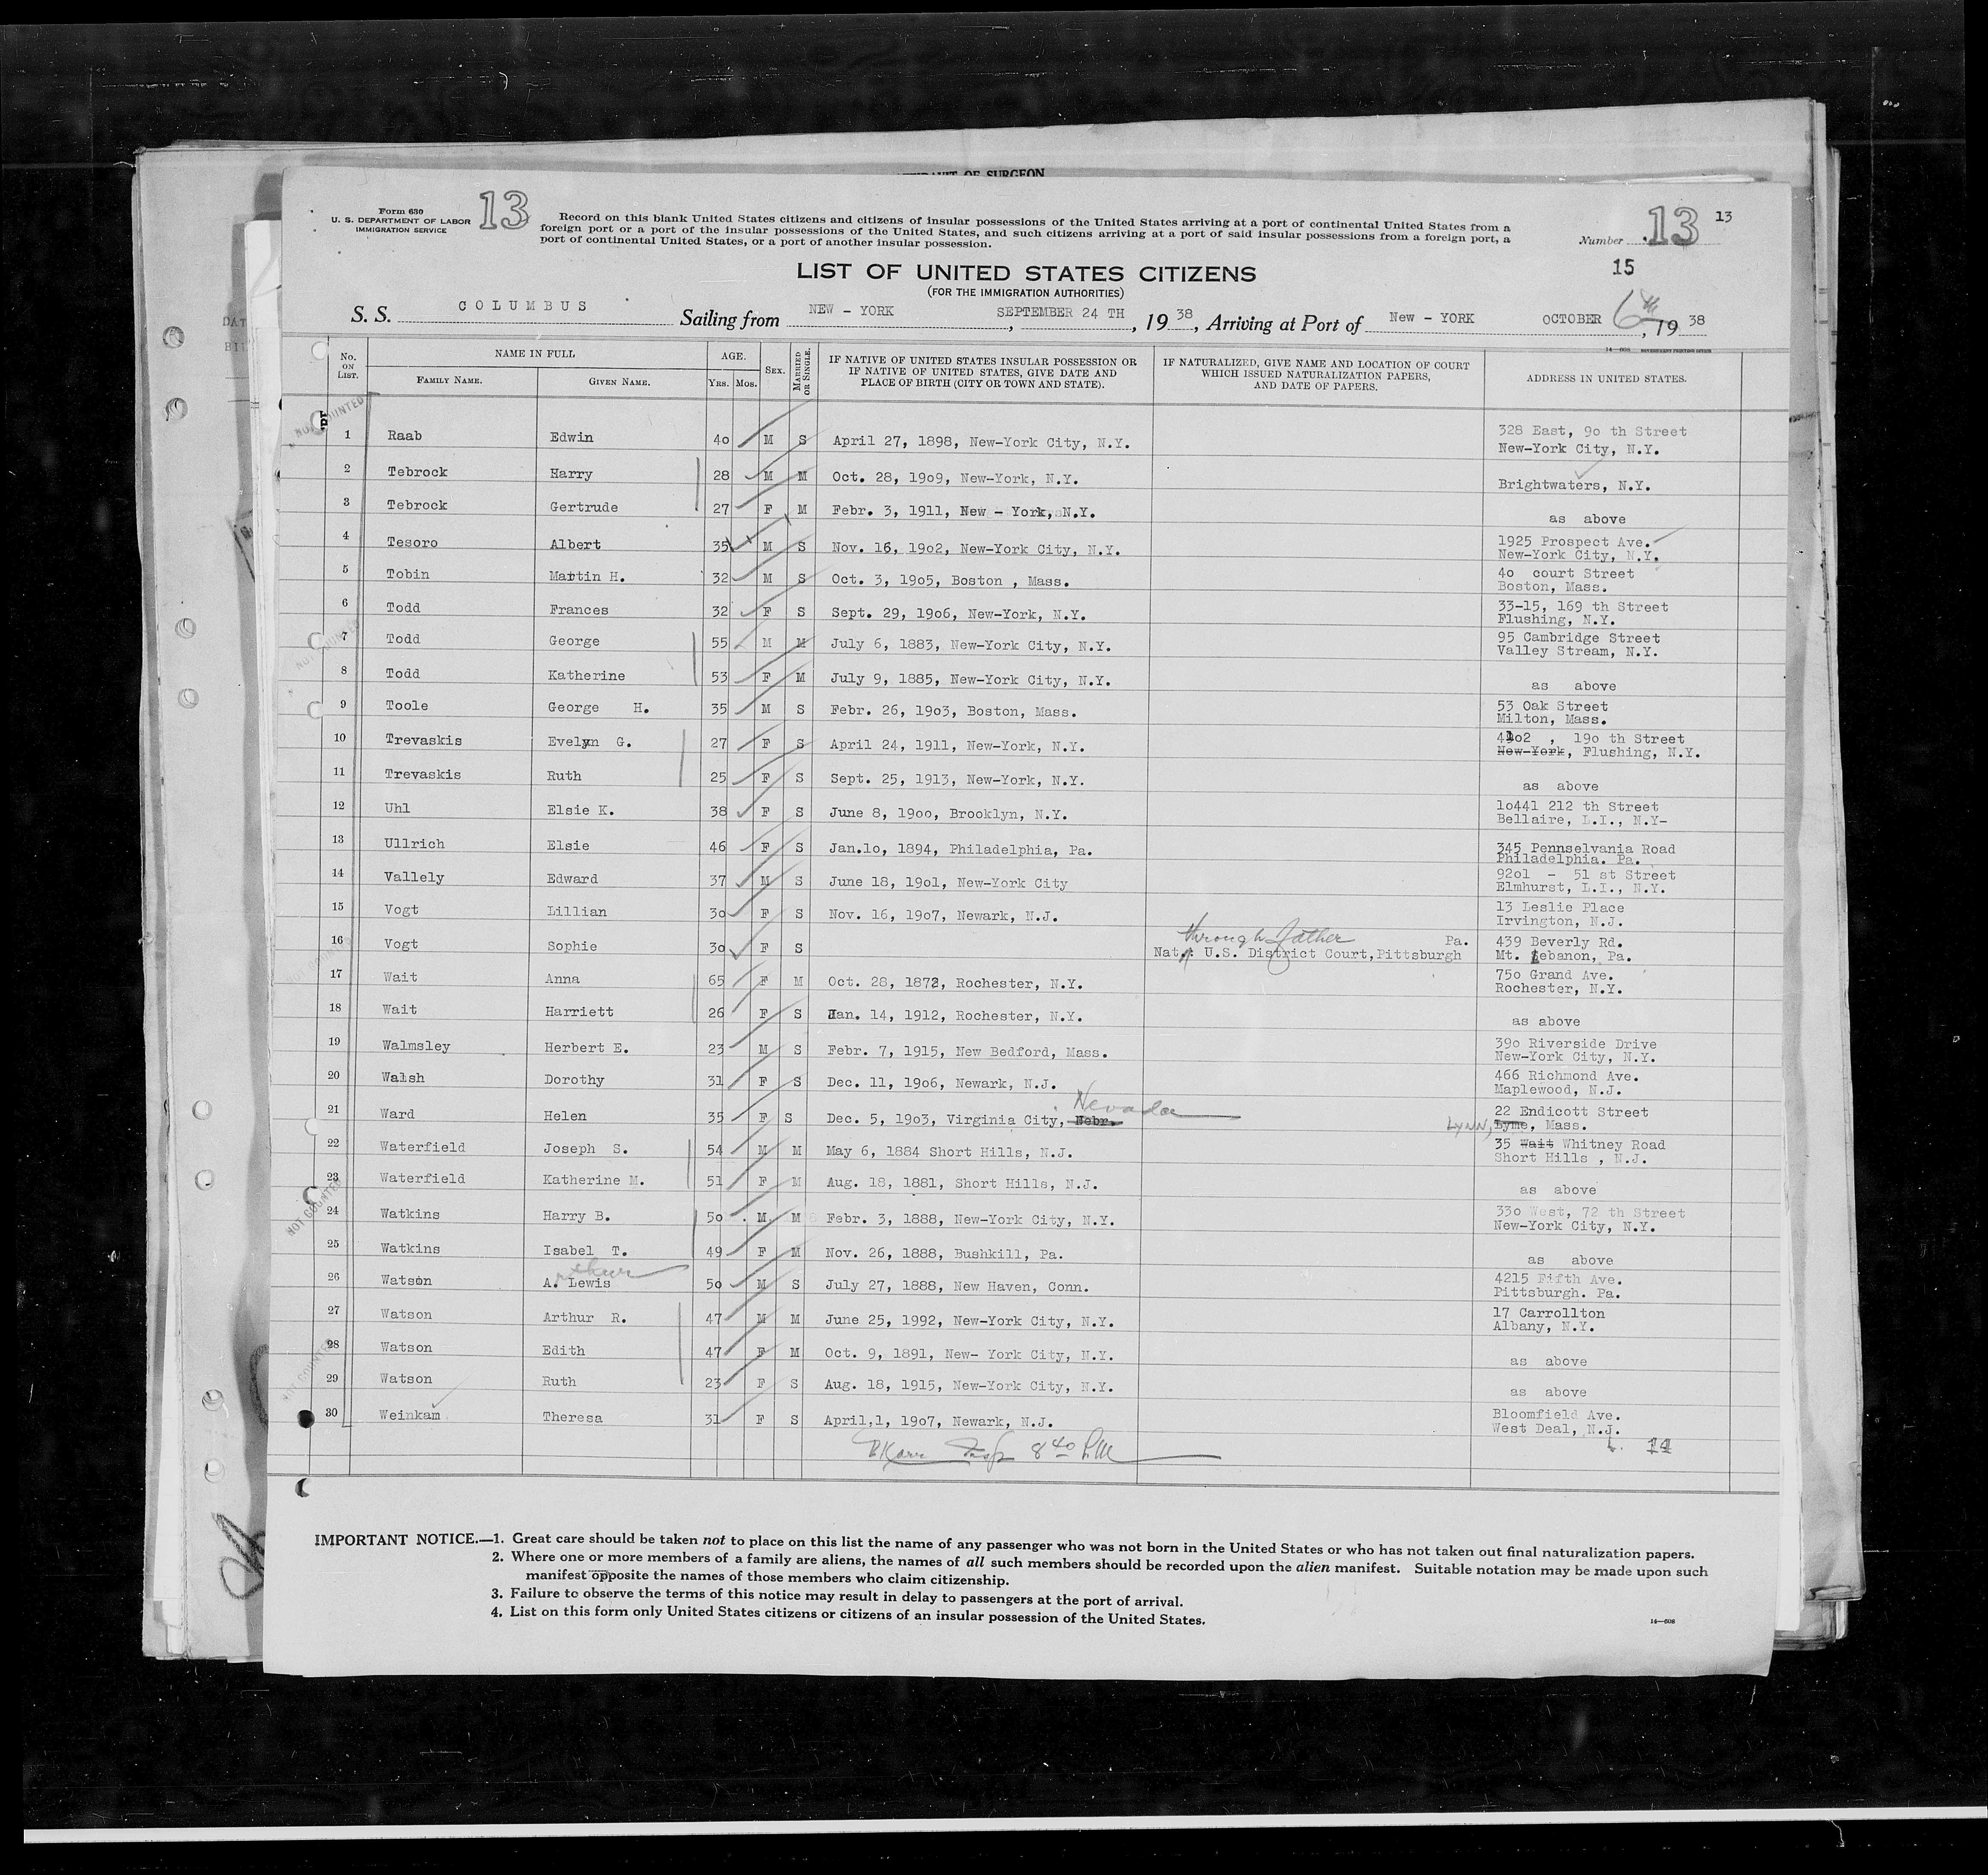 AVIT OF SURGEON
Form 630
U. S. DEPARTMENT OF LABOR
IMMIGRATION SERVICE
13
Record on this blank United States citizens and citizens of insular possessions of the United States arriving at a port of continental United States from a
foreign port or a port of the insular possessions of the United States, and such citizens arriving at a port of said insular possessions from a foreign port, a
port of continental United States, or a port of another insular possession.
Number 13 13
15
LIST OF UNITED STATES CITIZENS
(FOR THE IMMIGRATION AUTHORITIES)
S. S. COLUMBUS Sailing from NEW - YORK, SEPTEMBER 24 TH, 19 38, Arriving at Port of New - YORK OCTOBER 6th, 19 38
No. ON LIST. NAME IN FULL AGE. SEX. MARRIED OR SINGLE. IF NATIVE OF UNITED STATES INSULAR POSSESSION OR IF NATIVE OF UNITED STATES, GIVE DATE AND PLACE OF BIRTH (CITY OR TOWN AND STATE). IF NATURALIZED, GIVE NAME AND LOCATION OF COURT WHICH ISSUED NATURALIZATION PAPERS, AND DATE OF PAPERS. ADDRESS IN UNITED STATES.
FAMILY NAME. GIVEN NAME. YRS. MOS.
NOT COUNTED
1 Raab Edwin 40 M S April 27, 1898, New-York City, N.Y. 328 East, 90 th Street
New-York City, N.Y.
2 Tebrock Harry 28 M M Oct. 28, 1909, New-York, N.Y. Brightwaters, N.Y.
3 Tebrock Gertrude 27 F M Febr. 3, 1911, New - York, N.Y. as above
4 Tesoro Albert 35 M S Nov. 16, 1902, New-York City, N.Y. 1925 Prospect Ave.
New-York City, N.Y.
5 Tobin Martin H. 32 M S Oct. 3, 1905, Boston , Mass. 40 court Street
Boston, Mass.
6 Todd Frances 32 F S Sept. 29, 1906, New-York, N.Y. 33-15, 169 th Street
Flushing, N.Y.
NOT COUNTED
7 Todd George 55 M M July 6, 1883, New-York City, N.Y. 95 Cambridge Street
Valley Stream, N.Y.
8 Todd Katherine 53 F M July 9, 1885, New-York City, N.Y. as above
9 Toole George H. 35 M S Febr. 26, 1903, Boston, Mass. 53 Oak Street
Milton, Mass.
10 Trevaskis Evelyn G. 27 F S April 24, 1911, New-York, N.Y. 4302 , 190 th Street
New-York, Flushing, N.Y.
11 Trevaskis Ruth 25 F S Sept. 25, 1913, New-York, N.Y. as above
12 Uhl Elsie K. 38 F S June 8, 1900, Brooklyn, N.Y. 10441 212 th Street
Bellaire, L.I., N.Y-
13 Ullrich Elsie 46 F S Jan.10, 1894, Philadelphia, Pa. 345 Pennselvania Road
Philadelphia. Pa.
14 Vallely Edward 37 M S June 18, 1901, New-York City 9201 - 51 st Street
Elmhurst, L.I., N.Y.
15 Vogt Lillian 30 F S Nov. 16, 1907, Newark, N.J. 13 Leslie Place
Irvington, N.J.
through father
16 Vogt Sophie 30 F S Nat. U.S. District Court,Pittsburgh Pa. 439 Beverly Rd.
Mt. Lebanon, Pa.
NOT COUNTED
17 Wait Anna 65 F M Oct. 28, 1872, Rochester, N.Y. 750 Grand Ave.
Rochester, N.Y.
18 Wait Harriett 26 F S Jan. 14, 1912, Rochester, N.Y. as above
19 Walmsley Herbert E. 23 M S Febr. 7, 1915, New Bedford, Mass. 390 Riverside Drive
New-York City, N.Y.
20 Walsh Dorothy 31 F S Dec. 11, 1906, Newark, N.J. 466 Richmond Ave.
Maplewood, N.J.
21 Ward Helen 35 F S Dec. 5, 1903, Virginia City, Nebr. Nevada 22 Endicott Street
LYNN, Lyme, Mass.
22 Waterfield Joseph S. 54 M M May 6, 1884 Short Hills, N.J. 35 Wait Whitney Road
Short Hills , N.J.
23 Waterfield Katherine M. 51 F M Aug. 18, 1881, Short Hills, N.J. as above
NOT COUNTED
24 Watkins Harry B. 50 M M Febr. 3, 1888, New-York City, N.Y. 330 West, 72 th Street
New-York City, N.Y.
25 Watkins Isabel T. 49 F M Nov. 26, 1888, Bushkill, Pa. as above
26 Watson A. rthur Lewis 50 M S July 27, 1888, New Haven, Conn. 4215 Fifth Ave.
Pittsburgh. Pa.
27 Watson Arthur R. 47 M M June 25, 1992, New-York City, N.Y. 17 Carrollton
Albany, N.Y.
28 Watson Edith 47 F M Oct. 9, 1891, New- York City, N.Y. as above
NOT COUNTED
29 Watson Ruth 23 F S Aug. 18, 1915, New-York City, N.Y. as above
30 Weinkam Theresa 31 F S April,1, 1907, Newark, N.J. Bloomfield Ave.
West Deal, N.J.
Insp 8 40 PM
IMPORTANT NOTICE.—1. Great care should be taken not to place on this list the name of any passenger who was not born in the United States or who has not taken out final naturalization papers.
2. Where one or more members of a family are aliens, the names of all such members should be recorded upon the alien manifest. Suitable notation may be made upon such
manifest opposite the names of those members who claim citizenship.
3. Failure to observe the terms of this notice may result in delay to passengers at the port of arrival.
4. List on this form only United States citizens or citizens of an insular possession of the United States.
14—608